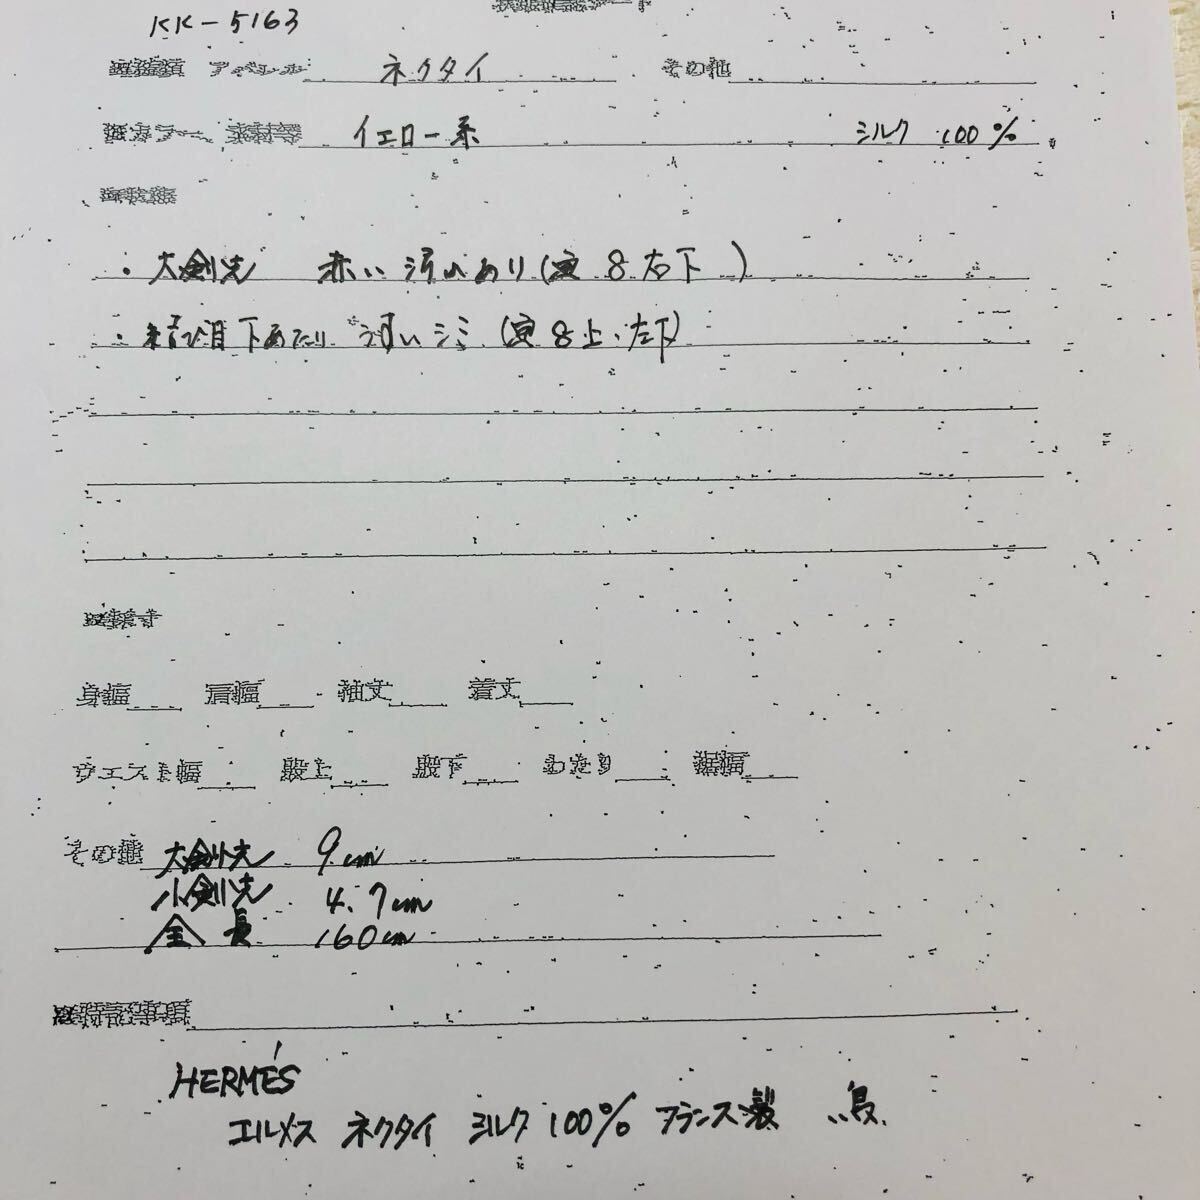 KK-5163
アパレル ネクタイ その他
カラー 素材等 イエロー系 シルク 100%
・大剣先 赤い汚れあり(寅 8右下 )
・結び目下あたり 薄いシミ (寅 8上・左下)
身幅 肩幅 袖丈 着丈
ウエスト幅 股上 股下 わたり 裾幅
その他 大剣先 9cm
小剣先 4.7cm
全長 160cm
特記事項
HERMÈS
エルメス ネクタイ シルク 100% フランス製 鳥